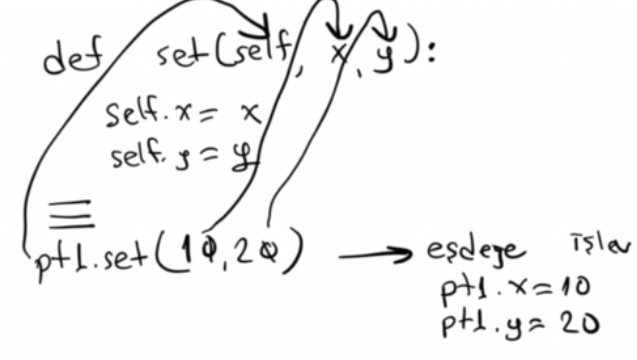 def set(self, x, y):
self.x = x
self.y = y
pt1.set(10,20) → eşdeğe işlev
pt1.x = 10
pt1.y = 20